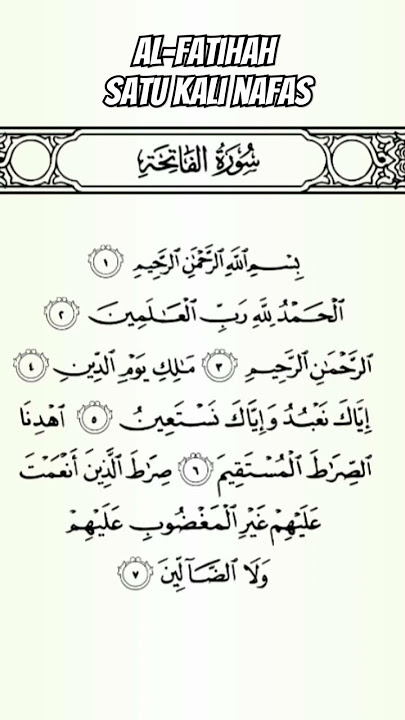 AL-FATIHAH
SATU KALI NAFAS
سُورَةُ الفَاتِحَةِ
بِسْمِ ٱللَّهِ ٱلرَّحْمَٰنِ ٱلرَّحِيمِ ١
ٱلْحَمْدُ لِلَّهِ رَبِّ ٱلْعَٰلَمِينَ ٢
ٱلرَّحْمَٰنِ ٱلرَّحِيمِ ٣ مَٰلِكِ يَوْمِ ٱلدِّينِ ٤
إِيَّاكَ نَعْبُدُ وَإِيَّاكَ نَسْتَعِينُ ٥ ٱهْدِنَا
ٱلصِّرَٰطَ ٱلْمُسْتَقِيمَ ٦ صِرَٰطَ ٱلَّذِينَ أَنْعَمْتَ
عَلَيْهِمْ غَيْرِ ٱلْمَغْضُوبِ عَلَيْهِمْ
وَلَا ٱلضَّآلِّينَ ٧